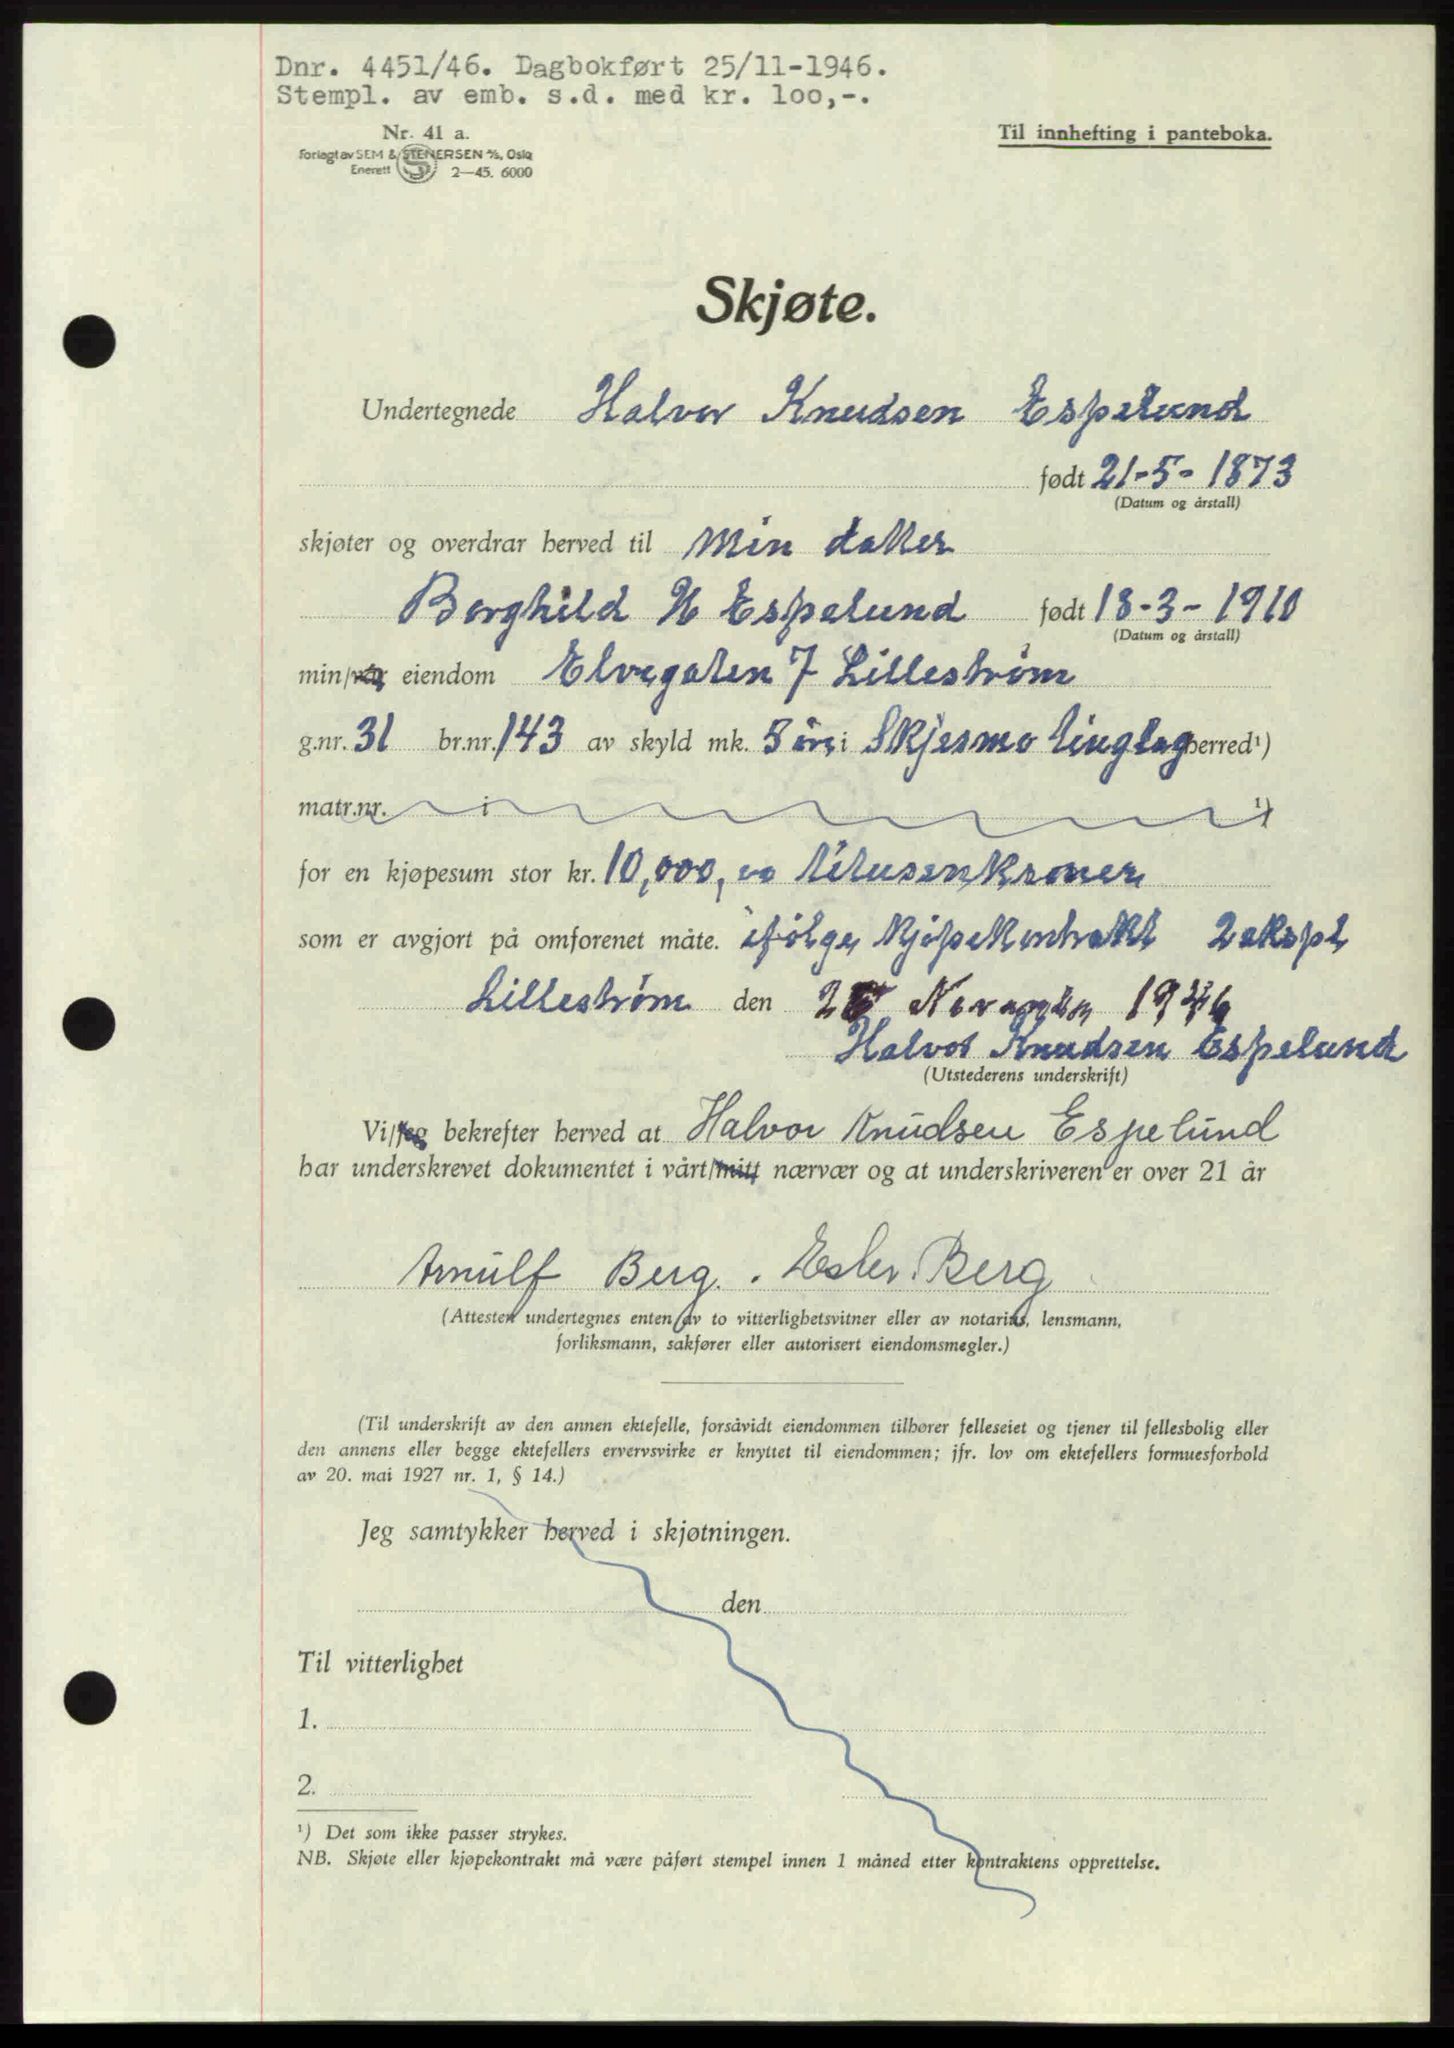 Dnr. 4451/46. Dagbokført 25/11-1946.
Stempl. av emb. s.d. med kr. 100,-.
Nr. 41 a.
Forlagt av SEM & STENERSEN A/S, Oslo
Enerett 2—45. 6000
Til innhefting i panteboka.
Skjøte.
Undertegnede Halvor Knudsen Espelund
født 21-5-1873
(Datum og årstall)
skjøter og overdrar herved til min datter
Borghild H Espelund født 18-3-1910
(Datum og årstall)
min/vår eiendom Elvegaten 7 Lilleström
g.nr. 31 br.nr. 143 av skyld mk. 5 öre i Skjesmo tinglag herred¹)
matr.nr. i ¹)
for en kjøpesum stor kr. 10,000, titusenkroner
som er avgjort på omforenet måte. ifölge kjöpekontrakt 2 ekspl
Lilleström den November 1946
Halvor Knudsen Espelund
(Utstederens underskrift)
Vi/jeg bekrefter herved at Halvor Knudsen Espelund
har underskrevet dokumentet i vårt/mitt nærvær og at underskriveren er over 21 år
Arnulf Berg. Ester Berg
(Attesten undertegnes enten av to vitterlighetsvitner eller av notarius, lensmann,
forliksmann, sakfører eller autorisert eiendomsmegler.)
(Til underskrift av den annen ektefelle, forsåvidt eiendommen tilhører felleseiet og tjener til fellesbolig eller
den annens eller begge ektefellers ervervsvirke er knyttet til eiendommen; jfr. lov om ektefellers formuesforhold
av 20. mai 1927 nr. 1, § 14.)
Jeg samtykker herved i skjøtningen.
den
Til vitterlighet
1.
2.
¹) Det som ikke passer strykes.
NB. Skjøte eller kjøpekontrakt må være påført stempel innen 1 måned etter kontraktens opprettelse.